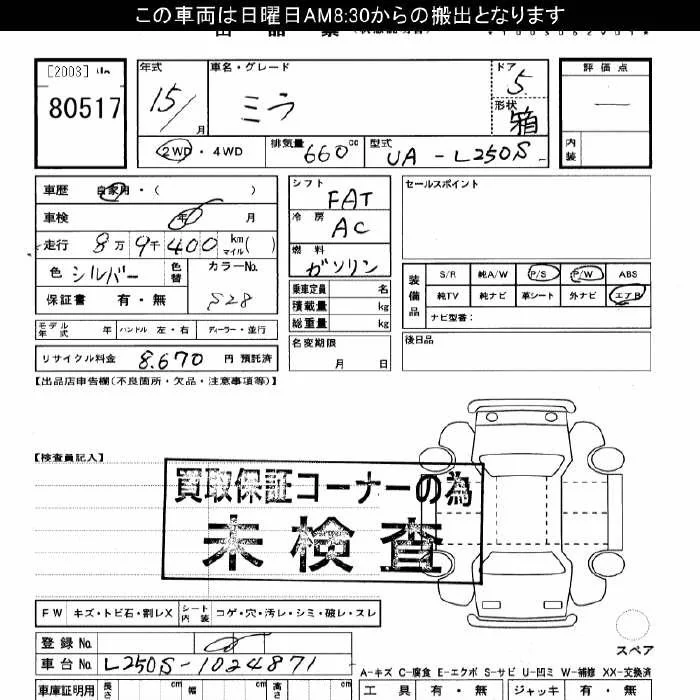 この車両は日曜日AM8:30からの搬出となります
[2003]
80517
年式 15/ 月
車名・グレード ミラ
ドア 5
形状 箱
評価点 —
内装
2WD・4WD
排気量 660 cc
型式 UA-L250S
車歴 自家用・( )
車検 年 月
走行 8万 9千 400 km マイル ( )
色 シルバー 色替
カラーNo. S28
保証書 有・無
シフト FAT
冷房 AC
燃料 ガソリン
乗車定員 名
積載量 kg
総重量 kg
名変期限 月 日
セールスポイント
装備品
S/R 純A/W P/S P/W ABS
純TV 純ナビ 革シート 外ナビ エアB
ナビ型番:
後日品
モデル年式 年 ハンドル 左・右 ディーラー・並行
リサイクル料金 8.670 円 預託済
【出品店申告欄(不良箇所・欠品・注意事項等)】
【検査員記入】
買取保証コーナーの為
未検査
FW キズ・トビ石・割レX シート内装 コゲ・穴・汚レ・シミ・破レ・スレ
登録No.
車台No. L250S-1024871
スペア
A-キズ C-腐食 E-エクボ S-サビ U-凹ミ W-補修 XX-交換済
車庫証明用 長さ cm 幅 cm 高さ cm
工具 有・無 ジャッキ 有・無